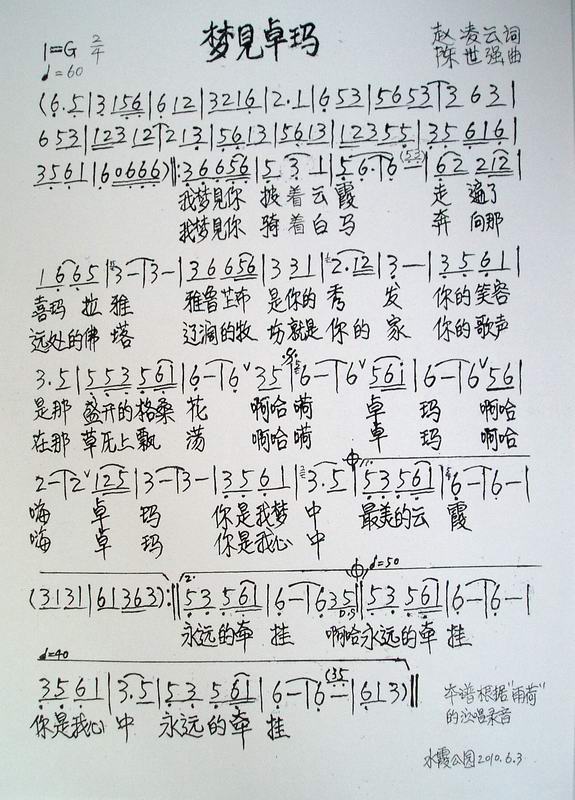 梦見卓玛
1=G 2/4
♩=60
赵凌云词
陈世强曲
(6.5|3156|612|3216|2.1|653|5653|363|
653|12312|213|5613|5613|12355|35616|
3561|60666)‖:366656|5.31|56.|6(52)|62212|
我梦見你 披着云霞 走遍了
我梦見你 骑着白马 奔向那
1665|3-|3-|366656|331|2.12|3-|3561|
喜玛拉雅 雅鲁芷布 是你的秀发 你的笑容
远处的佛塔 辽阔的牧场就是你的家 你的歌声
3.5|553561|6-|6 35|6-|6 561|6-|6 561|
是那盛开的格桑花 啊哈嗬 卓玛 啊哈
在那草厡上飘荡 啊哈嗬 卓玛 啊哈
2-|2 125|3-|3-|3561|3.5|53561|6-|6-|
嗨 卓玛 你是我梦中 最美的云霞
嗨 卓玛 你是我心中
♩=50
(3131|61363):‖53561|6-|635|53561|6-|6-|
2.
D.S
永远的牵挂 啊哈永远的牵挂
♩=40
3561|3.5|53561|6-|6(35|613)‖
你是我心中 永远的牵挂
本谱根据"雨荷"
的演唱录音
水霞公园2010.6.3